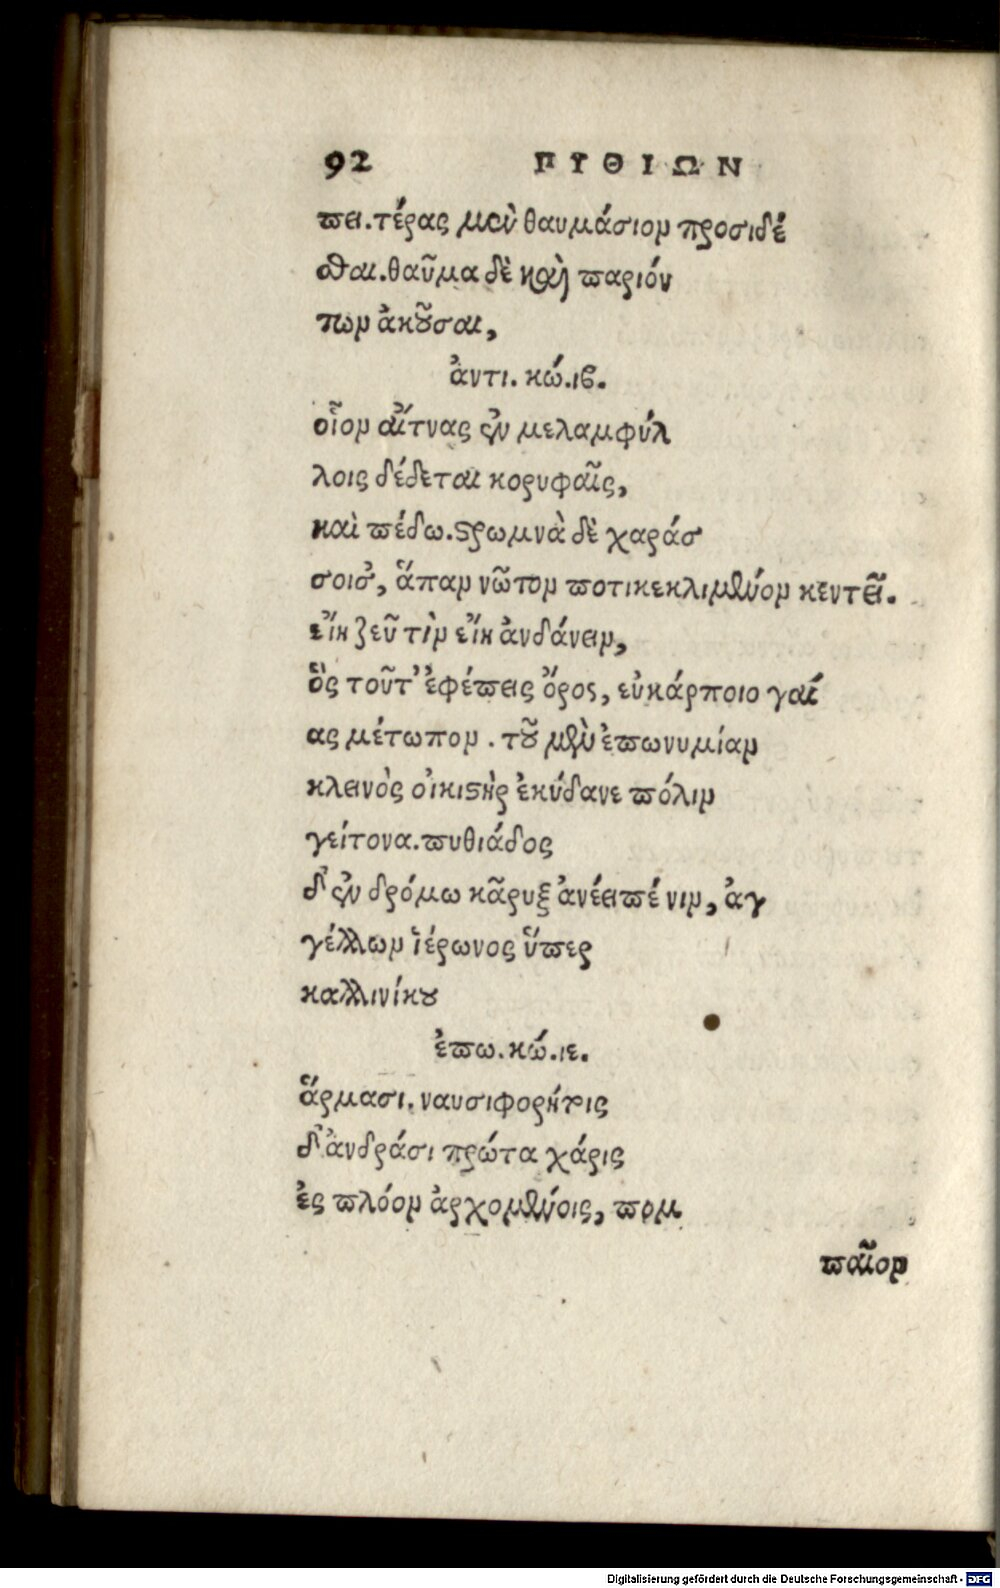 92 ΠΥΘΙΩΝ
πει. τέρας μὲν θαυμάσιον προσιδέ
σθαι. θαῦμα δὲ καὶ παριόν
των ἀκοῦσαι,
ἀντι. κώ. ιβ.
οἷον αἴτνας ἐν μελαμφύλ
λοις δέδεται κορυφαῖς,
καὶ πέδω. στρωμνὰ δὲ χαράσ
σοισ', ἅπαν νῶτον ποτικεκλιμένον κεντεῖ.
εἴη ζεῦ τὶν εἴη ἁνδάνειν,
ὃς τοῦτ' ἐφέπεις ὄρος, εὐκάρποιο γαί
ας μέτωπον. τοῦ μὲν ἐπωνυμίαν
κλεινὸς οἰκιστὴρ ἐκύδανε πόλιν
γείτονα. πυθιάδος
δ' ἐν δρόμω κᾶρυξ ἀνέειπέ νιν, ἀγ
γέλλων ἱέρωνος ὕπερ
καλλινίκου
ἐπω. κώ. ιε.
ἅρμασι. ναυσιφορήτοις
δ' ἀνδράσι πρώτα χάρις
ἐς πλόον ἀρχομένοις, πομ
παῖον
Digitalisierung gefördert durch die Deutsche Forschungsgemeinschaft - DFG